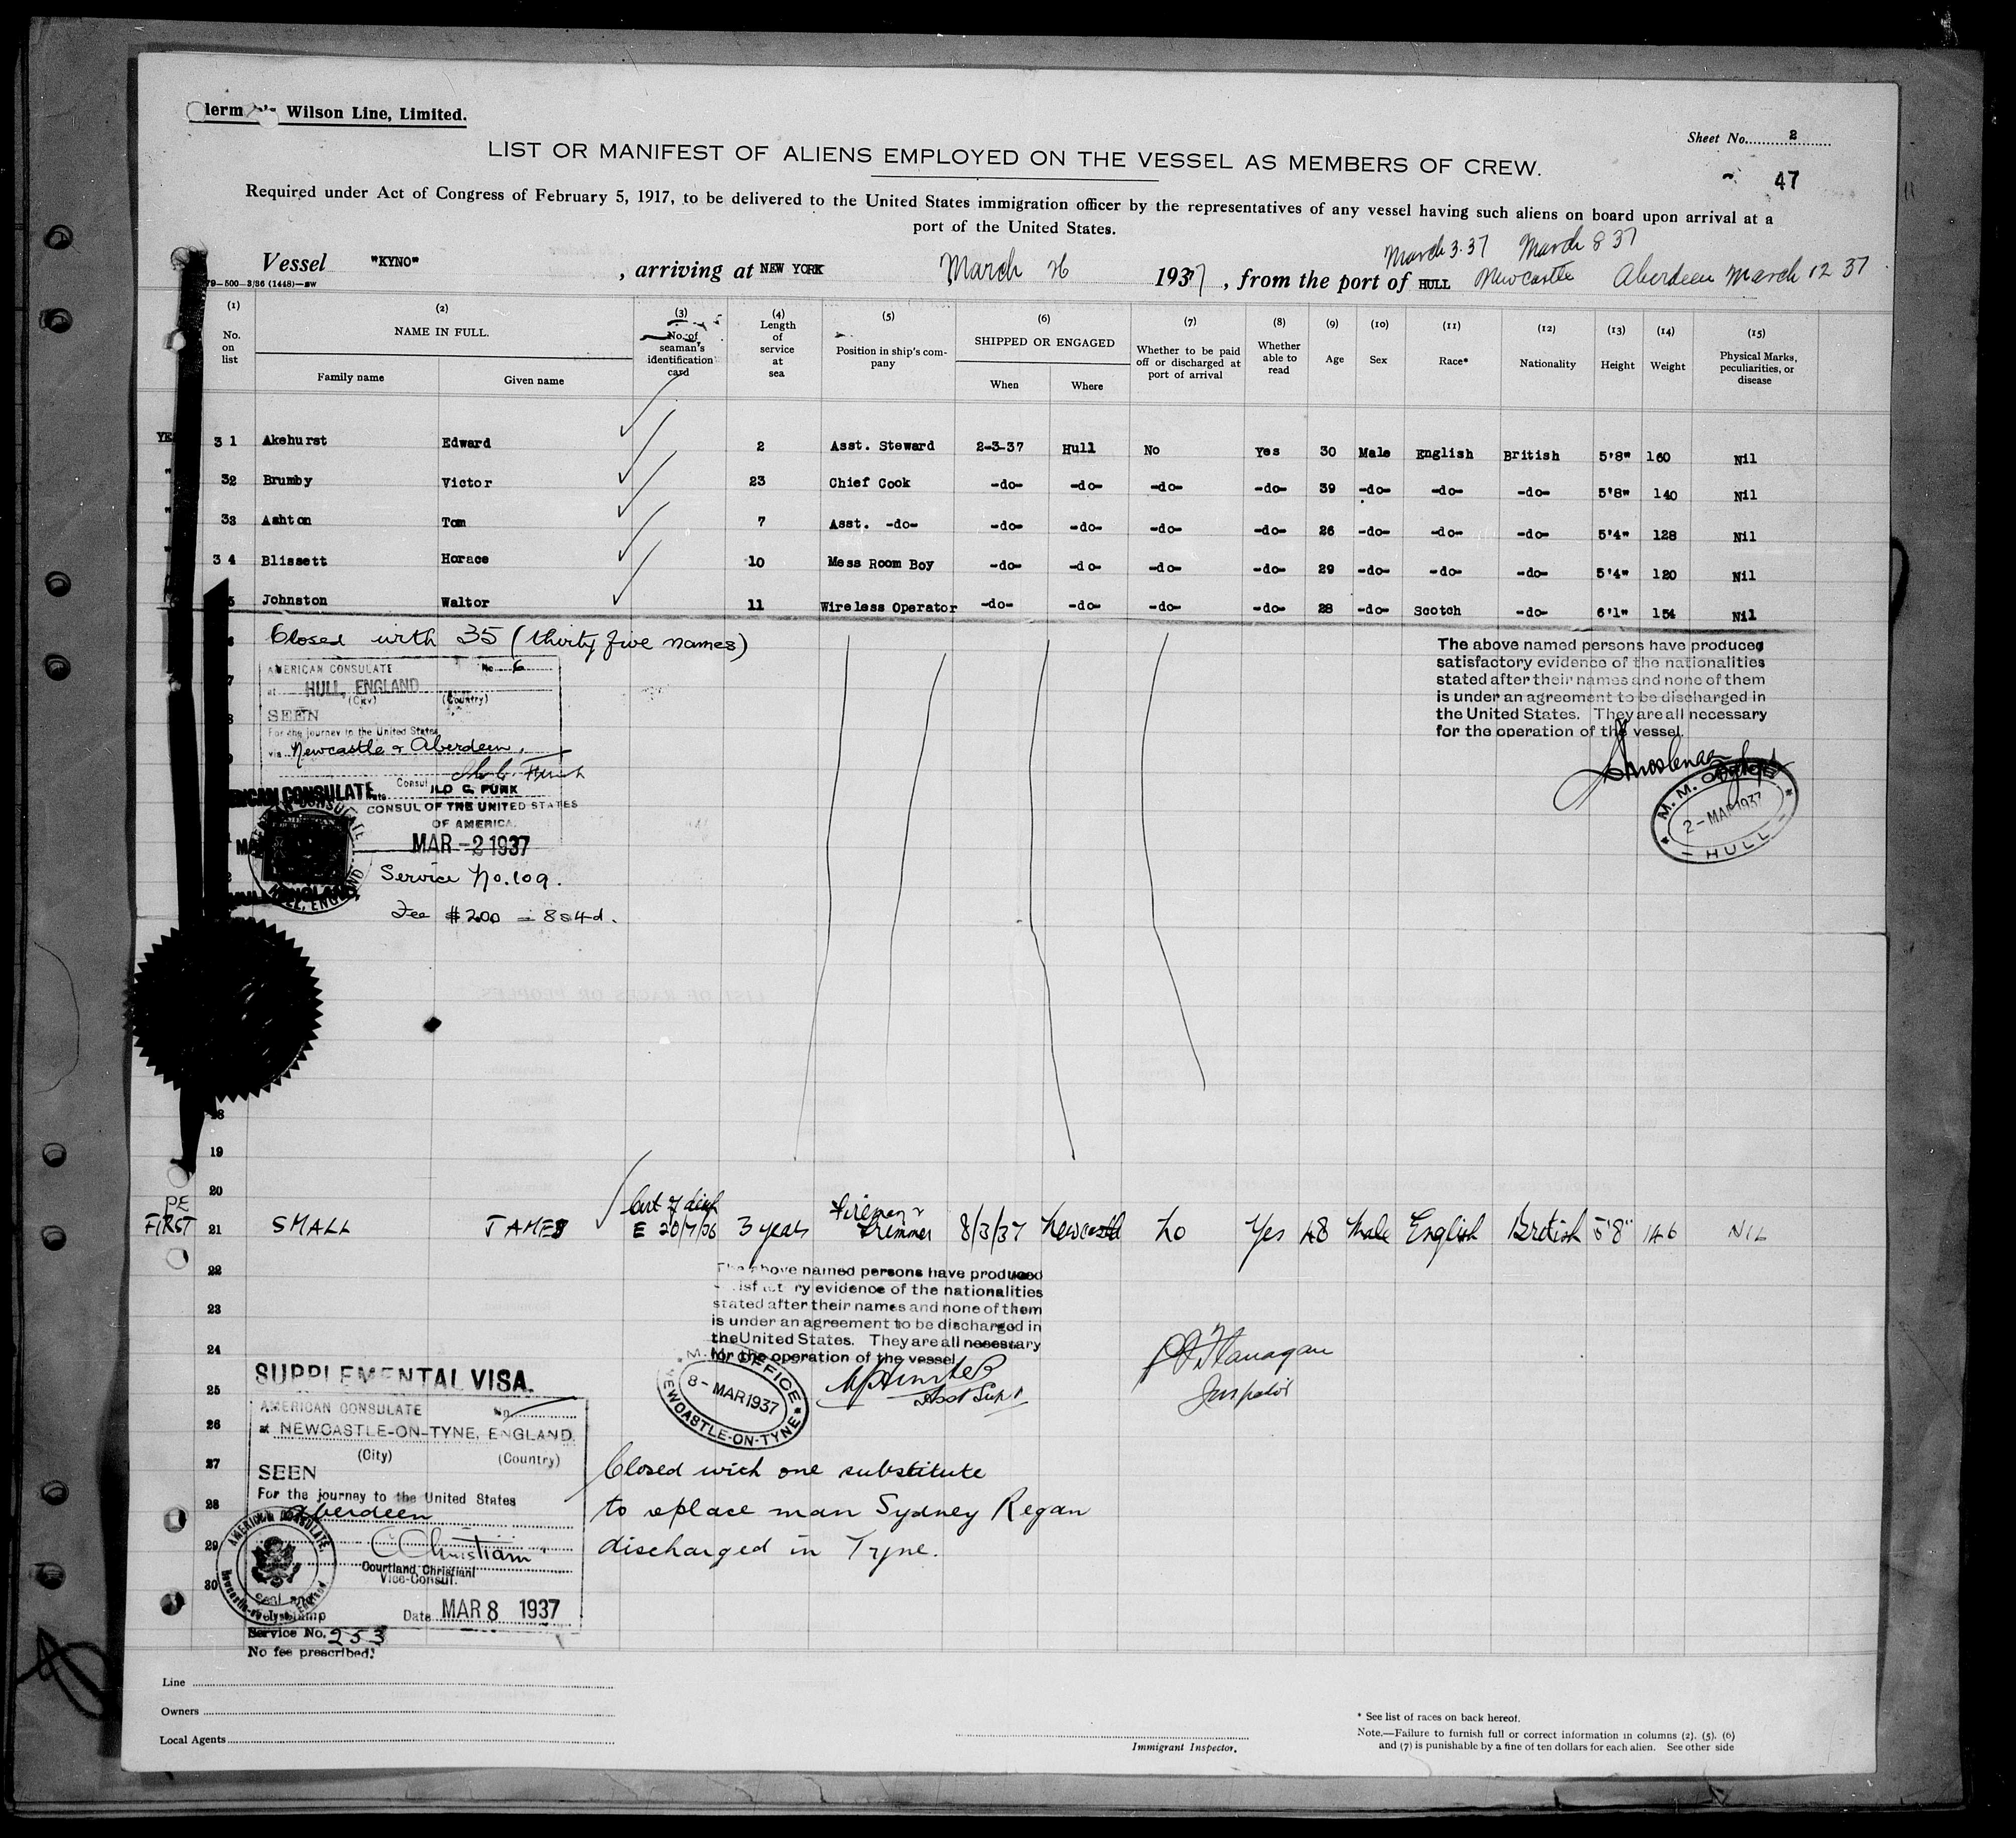 lerm Wilson Line, Limited.
Sheet No. 2
LIST OR MANIFEST OF ALIENS EMPLOYED ON THE VESSEL AS MEMBERS OF CREW.
47
Required under Act of Congress of February 5, 1917, to be delivered to the United States immigration officer by the representatives of any vessel having such aliens on board upon arrival at a
port of the United States.
March 3.37 March 8 37
Vessel "KYNO" , arriving at NEW YORK March 26 1937 , from the port of HULL Newcastle Aberdeen March 12 37
79-500-3/36 (1448)-SW
(1) (2) (3) (4) (5) (6) (7) (8) (9) (10) (11) (12) (13) (14) (15)
No. on list
NAME IN FULL.
Family name Given name
No. of seaman's identification card
Length of service at sea
Position in ship's company
SHIPPED OR ENGAGED
When Where
Whether to be paid off or discharged at port of arrival
Whether able to read
Age Sex Race* Nationality Height Weight
Physical Marks, peculiarities, or disease
31 Akehurst Edward 2 Asst. Steward 2-3-37 Hull No Yes 30 Male English British 5'8" 160 Nil
32 Brumby Victor 23 Chief Cook -do- -do- -do- -do- 39 -do- -do- -do- 5'8" 140 Nil
33 Ashton Tom 7 Asst. -do- -do- -do- -do- -do- 26 -do- -do- -do- 5'4" 128 Nil
34 Blissett Horace 10 Mess Room Boy -do- -do- -do- -do- 29 -do- -do- -do- 5'4" 120 Nil
5 Johnston Waltor 11 Wireless Operator -do- -do- -do- -do- 28 -do- Scotch -do- 6'1" 154 Nil
Closed with 35 (thirty five names)
The above named persons have produced
satisfactory evidence of the nationalities
stated after their names and none of them
is under an agreement to be discharged in
the United States. They are all necessary
for the operation of the vessel.
AMERICAN CONSULATE No. 6
at HULL, ENGLAND
(City) (Country)
SEEN
For the journey to the United States
via Newcastle & Aberdeen,
Consul
ILO C. FUNK
CONSUL OF THE UNITED STATES
OF AMERICA.
MAR -2 1937
Service No. 109.
Fee $2.00 = 8s4d.
M. M. Office
2 - MAR 1937
HULL
18
19
20
PE
FIRST 21 SMALL JAMES Cert of disch E 20/7/36 3 years Fireman & Trimmer 8/3/37 Newcastle No Yes 48 Male English British 5'8" 146 NIL
22
23
24
25
26
27
28
29
30
The above named persons have produced
satisfactory evidence of the nationalities
stated after their names and none of them
is under an agreement to be discharged in
the United States. They are all necessary
for the operation of the vessel
M. M. OFFICE
8 - MAR 1937
NEWCASTLE-ON-TYNE
Asst Supt
Flanagan
Inspector
SUPPLEMENTAL VISA.
AMERICAN CONSULATE No.
at NEWCASTLE-ON-TYNE, ENGLAND.
(City) (Country)
SEEN
For the journey to the United States
Aberdeen
CChristiani
Courtland Christiani
Vice-Consul.
AMERICAN CONSULATE
Newcastle-on-Tyne, England
Date MAR 8 1937
Service No. 253
No fee prescribed.
Closed with one substitute
to replace man Sydney Regan
discharged in Tyne.
Line
Owners
Local Agents
Immigrant Inspector.
* See list of races on back hereof.
Note.—Failure to furnish full or correct information in columns (2), (5), (6)
and (7) is punishable by a fine of ten dollars for each alien. See other side